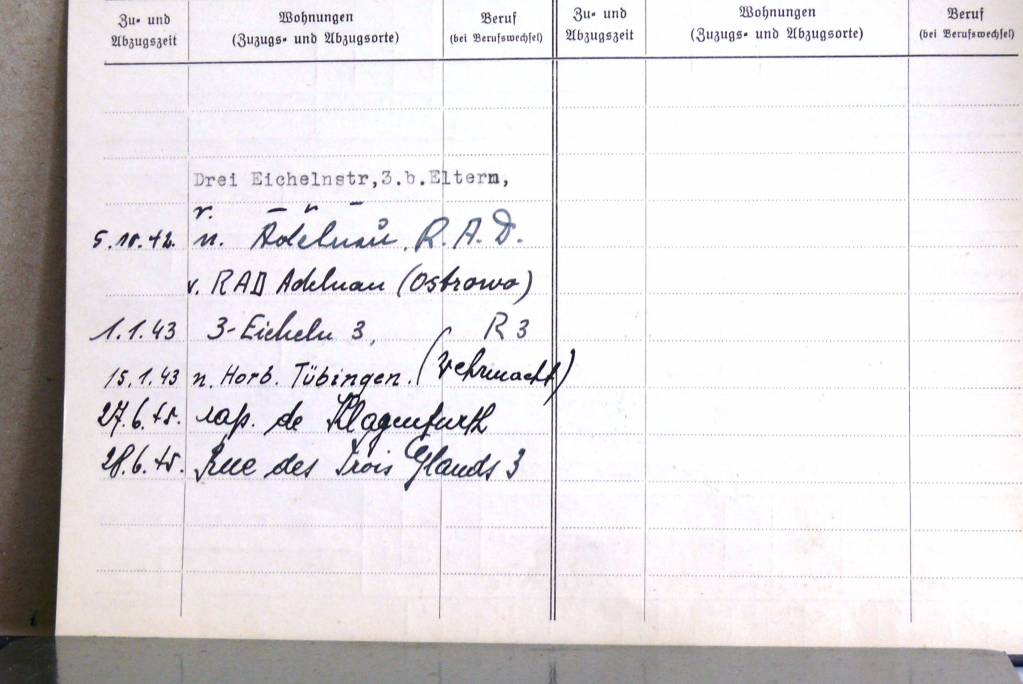 Zu- und Abzugszeit
Wohnungen (Zuzugs- und Abzugsorte)
Beruf (bei Berufswechsel)
Zu- und Abzugszeit
Wohnungen (Zuzugs- und Abzugsorte)
Beruf (bei Berufswechsel)
Drei Eichelnstr,3.b.Eltern,
v. — " —
5.10.42. n. Adelnau, R.A.D.
v. RAD Adelnau (Ostrowo)
1.1.43 3-Eicheln 3, R 3
15.1.43 n. Horb. Tübingen. (Wehrmacht)
27.6.45. rap. de Klagenfurth
28.6.45. Rue des Trois Glands 3